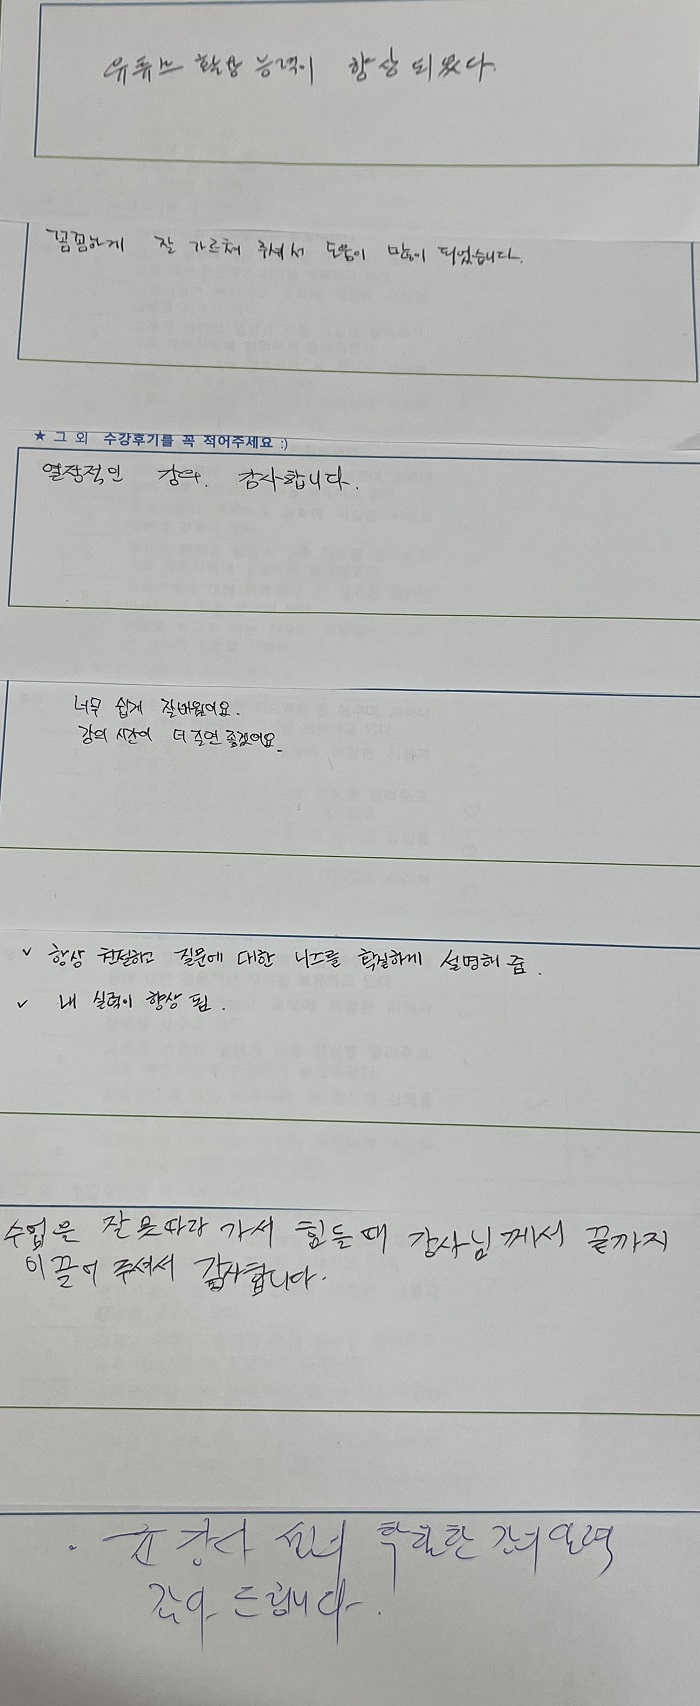 유튜브 활용 능력이 향상 되었다.
꼼꼼하게 잘 가르쳐 주셔서 도움이 많이 되었습니다.
★ 그 외 수강후기를 꼭 적어주세요 :)
열정적인 강의. 감사합니다.
너무 쉽게 잘배웠어요.
강의 시간이 더 주면 좋겠어요.
✓ 항상 친절하고 질문에 대한 니즈를 확실하게 설명해 줌.
✓ 내 실력이 향상 됨.
수업을 잘 못따라 가서 힘들때 강사님께서 끝까지
이끌어 주셔서 감사합니다.
· 윤 강사 님의 확실한 강의
감사 드립니다.